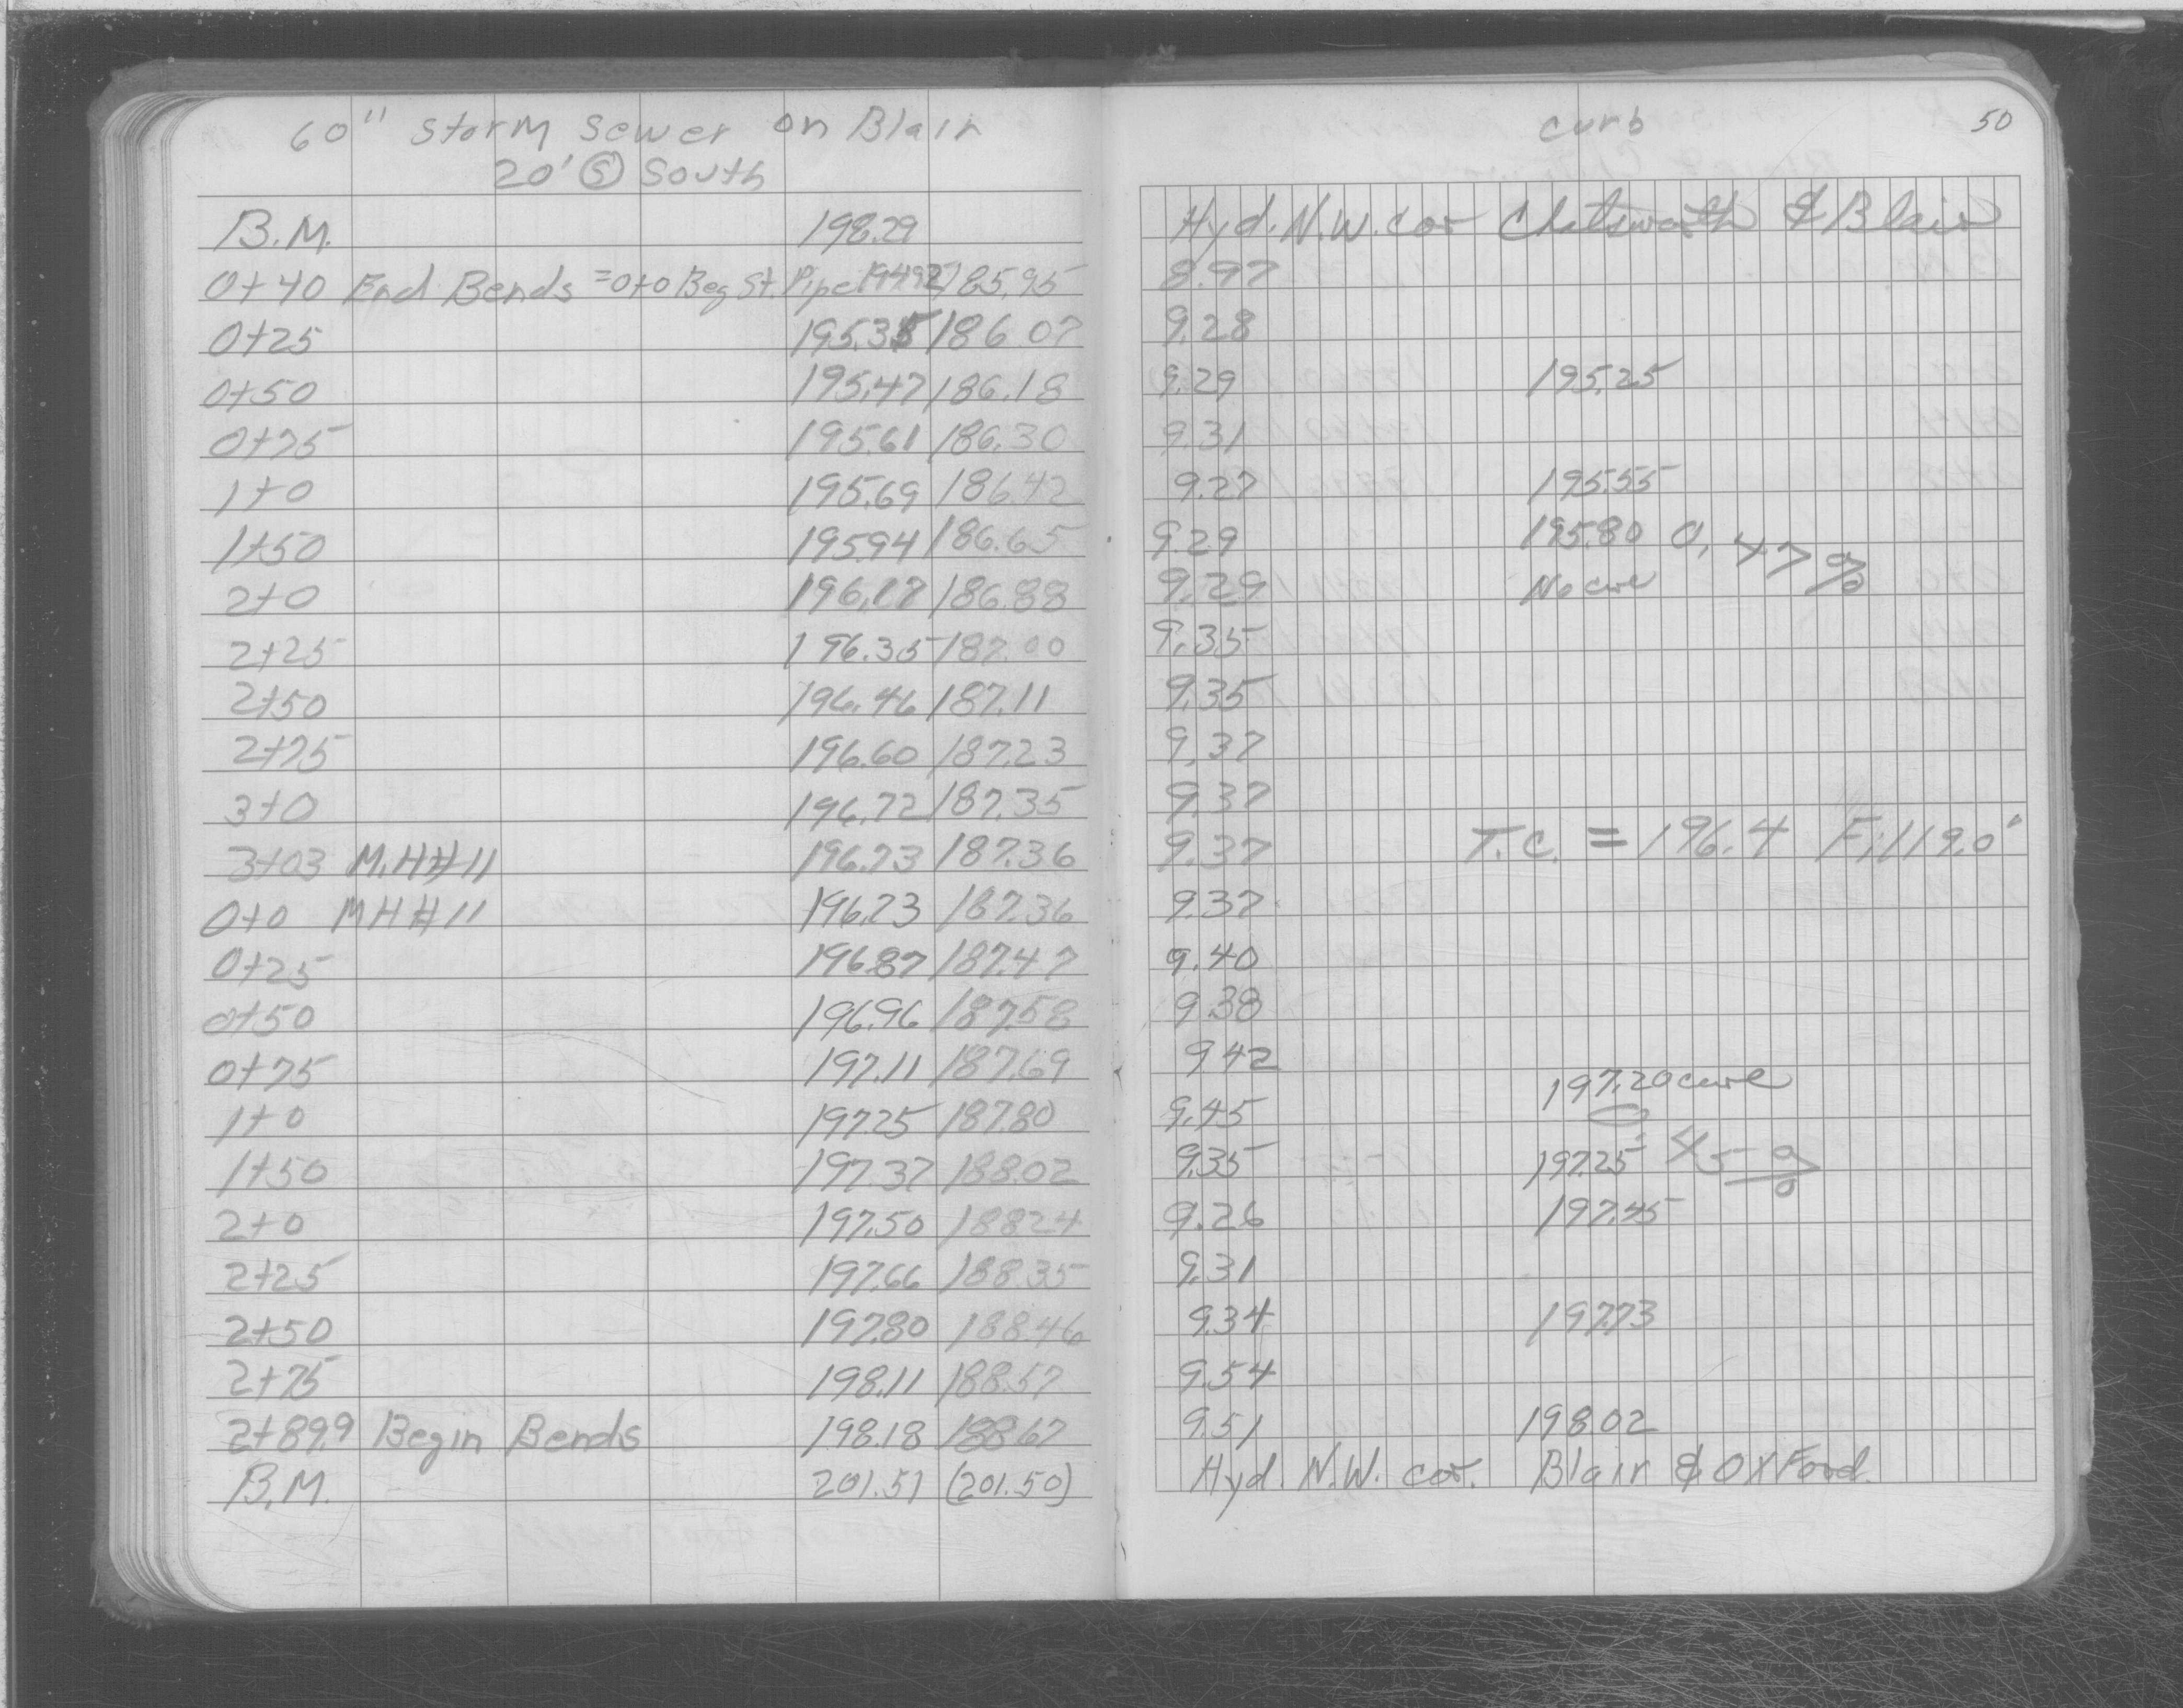 60" Storm Sewer on Blair
20' Ⓢ South
B.M. 198.29
0+40 End Bends = 0+0 Beg St. Pipe 194.92 185.95
0+25 195.35 186.07
0+50 195.47 186.18
0+75 195.61 186.30
1+0 195.69 186.42
1+50 195.94 186.65
2+0 196.17 186.88
2+25 196.35 187.00
2+50 196.46 187.11
2+75 196.60 187.23
3+0 196.72 187.35
3+03 M.H#11 196.73 187.36
0+0 MH#11 196.73 187.36
0+25 196.87 187.47
0+50 196.96 187.58
0+75 197.11 187.69
1+0 197.25 187.80
1+50 197.37 188.02
2+0 197.50 188.24
2+25 197.66 188.35
2+50 197.80 188.46
2+75 198.11 188.57
2+89.9 Begin Bends 198.18 188.67
B.M. 201.51 (201.50)
curb 50
Hyd. N.W. cor Chatsworth & Blair
8.97
9.28
9.29 195.25
9.31
9.27 195.55
9.29 195.80 0.47%
9.29 No curb
9.35
9.35
9.37
9.37
9.37 T.C. = 196.4 Fill 9.0'
9.37
9.40
9.38
9.42
197.20 curb
9.45
9.35 197.25 .45%
9.26 197.45
9.31
9.34 197.73
9.54
9.51 198.02
Hyd. N.W. cor. Blair & Oxford.